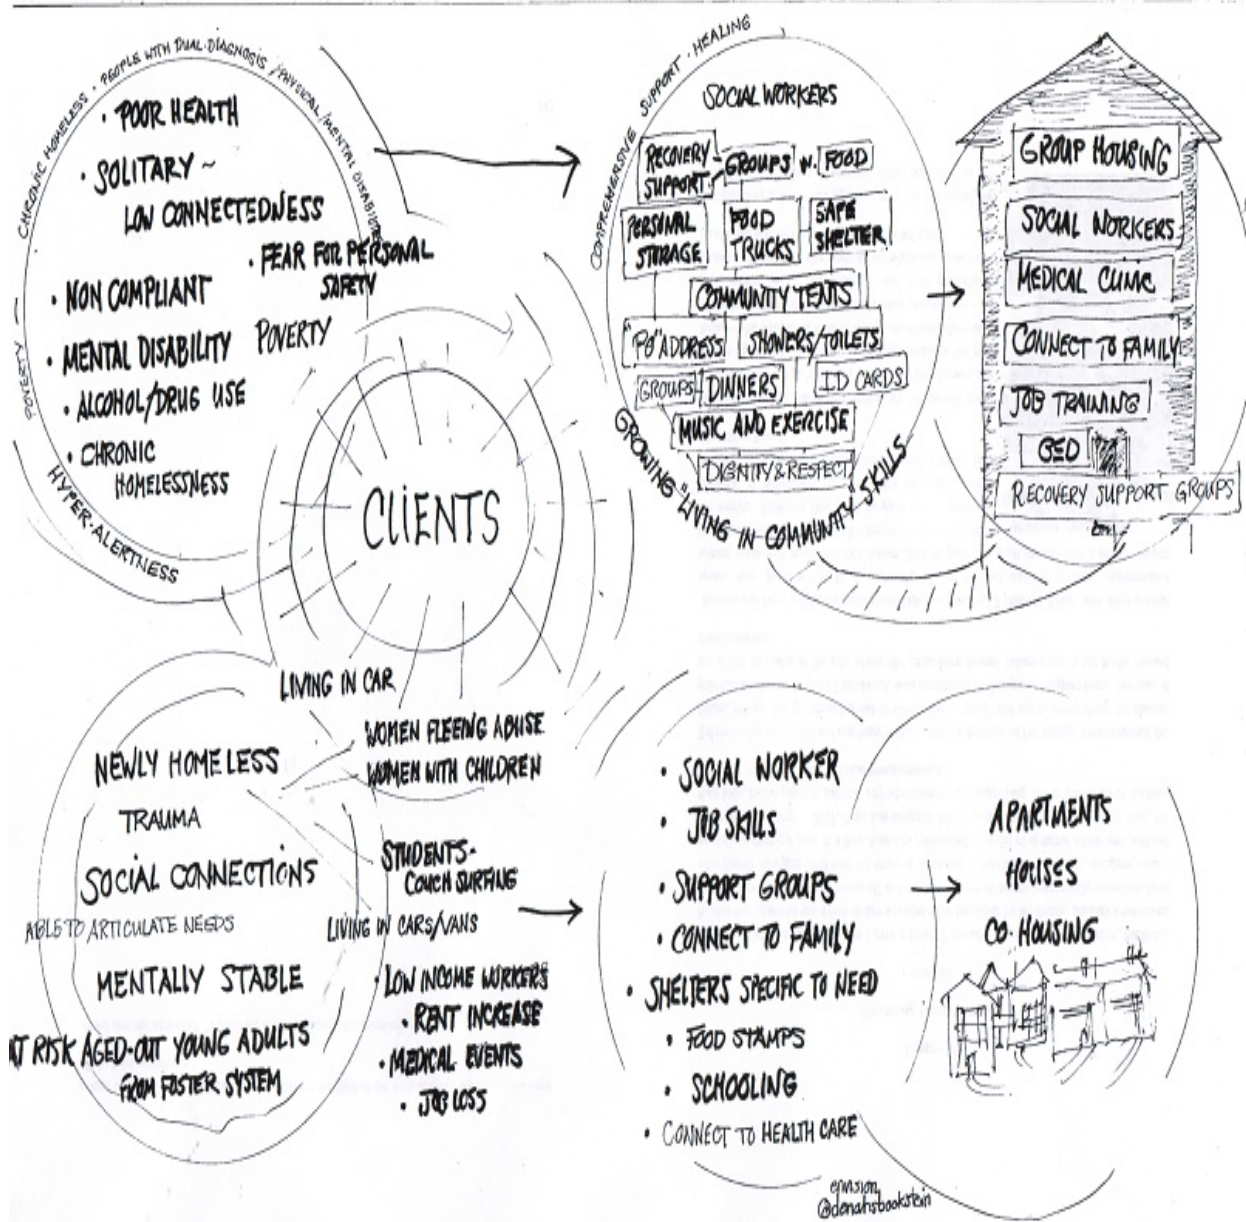 CHRONIC HOMELESS • PEOPLE WITH DUAL-DIAGNOSIS / PHYSICAL/MENTAL DISABILITIES
POVERTY —
HYPER-ALERTNESS
• POOR HEALTH
• SOLITARY ~
LOW CONNECTEDNESS
• FEAR FOR PERSONAL
SAFETY
• NON COMPLIANT
POVERTY
• MENTAL DISABILITY
• ALCOHOL/DRUG USE
• CHRONIC
HOMELESSNESS
CLIENTS
COMPREHENSIVE SUPPORT • HEALING
SOCIAL WORKERS
RECOVERY
SUPPORT
GROUPS W. FOOD
PERSONAL
STORAGE
FOOD
TRUCKS
SAFE
SHELTER
COMMUNITY TENTS
"PO" ADDRESS
SHOWERS/TOILETS
GROUPS
DINNERS
ID CARDS
MUSIC AND EXERCISE
DIGNITY & RESPECT
GROWING "LIVING IN COMMUNITY" SKILLS
GROUP HOUSING
SOCIAL WORKERS
MEDICAL CLINIC
CONNECT TO FAMILY
JOB TRAINING
GED
RECOVERY SUPPORT GROUPS
LIVING IN CAR
WOMEN FLEEING ABUSE
WOMEN WITH CHILDREN
NEWLY HOMELESS
TRAUMA
SOCIAL CONNECTIONS
ABLE TO ARTICULATE NEEDS
MENTALLY STABLE
AT RISK AGED-OUT YOUNG ADULTS
FROM FOSTER SYSTEM
STUDENTS-
COUCH SURFING
LIVING IN CARS/VANS
• LOW INCOME WORKERS
• RENT INCREASE
• MEDICAL EVENTS
• JOB LOSS
• SOCIAL WORKER
• JOB SKILLS
• SUPPORT GROUPS
• CONNECT TO FAMILY
• SHELTERS SPECIFIC TO NEED
• FOOD STAMPS
• SCHOOLING
• CONNECT TO HEALTH CARE
APARTMENTS
HOUSES
CO-HOUSING
envision
@denahsbookstein